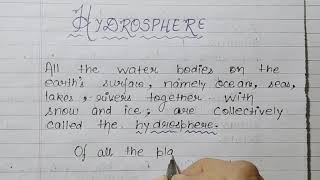 HYDROSPHERE
All the water bodies on the
earth's surface, namely ocean, seas,
lakes, rivers together with
snow and ice; are collectively
called the hydrosphere.
Of all the pla